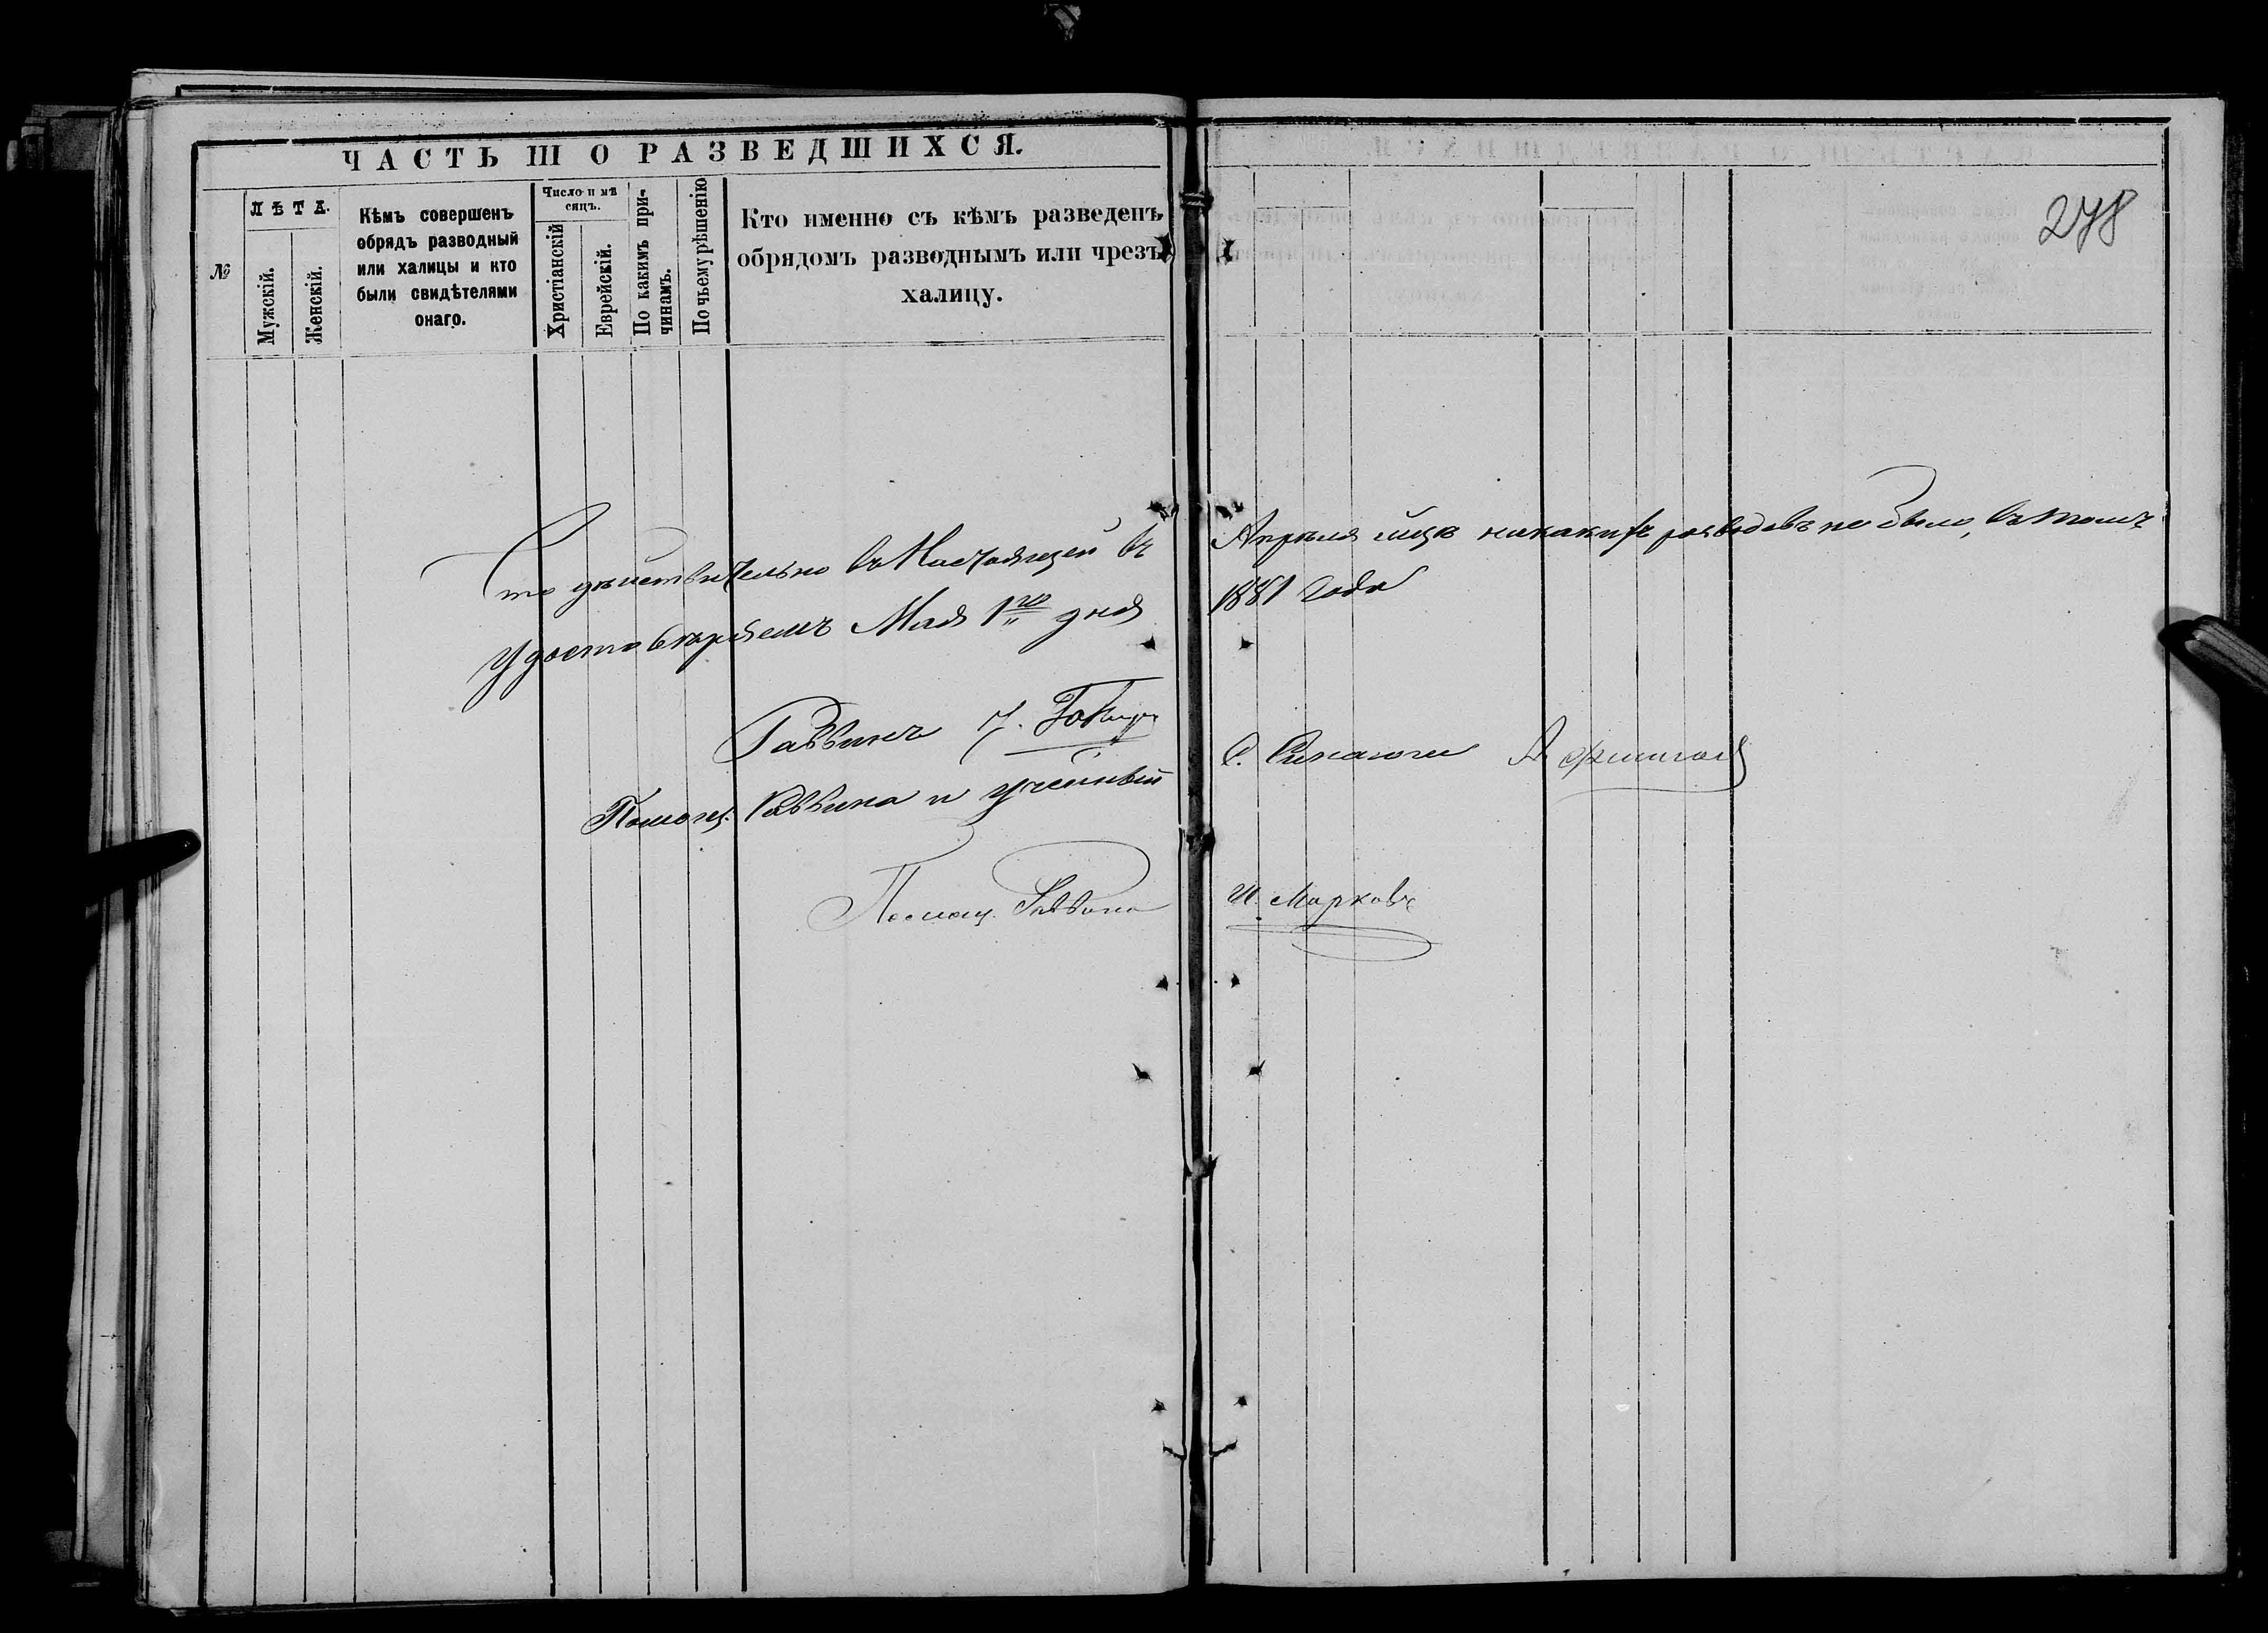 ЧАСТЬ III О РАЗВЕДШИХСЯ.
№
ЛѢТА.
Мужскій.
Женскій.
Кѣмъ совершенъ
обрядъ разводный
или халицы и кто
были свидѣтелями
онаго.
Число и мѣ
сяцъ.
Христіанскій
Еврейскій.
По какимъ при-
чинамъ.
По чьему рѣшенію
Кто именно съ кѣмъ разведенъ
обрядомъ разводнымъ или чрезъ
халицу.
278
Что дѣйствительно въ Настоящей въ Апрѣля мцѣ никакихъ разводовъ не было, въ томъ
удостовѣряемъ Мая 1го дня 1881 года
Раввинъ
Помощ. Раввина и ученый С. Синагоги А.
Помощ. Раввина И. Марковъ